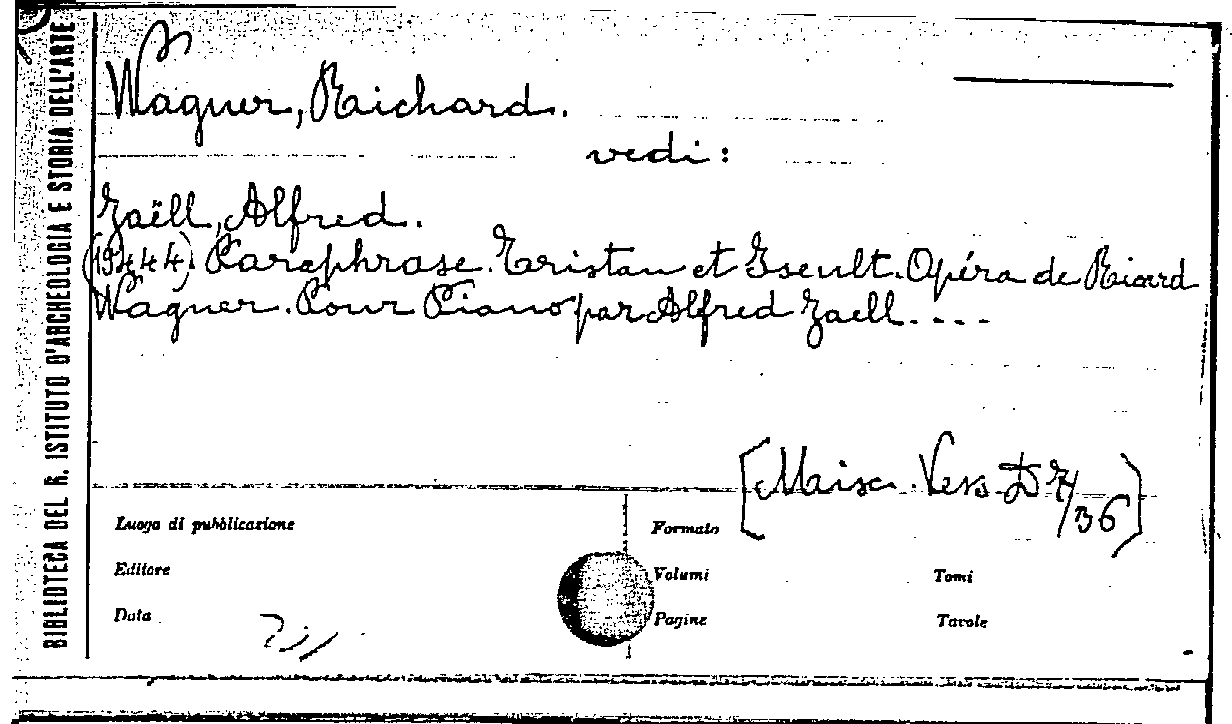 BIBLIOTECA DEL R. ISTITUTO D'ARCHEOLOGIA E STORIA DELL'ARTE
Wagner, Richard.
vedi:
Jaëll, Alfred.
(19444). Paraphrase. Tristan et Iseult. Opéra de Ricard
Wagner. Pour Piano par Alfred Jaell....
[Misc. Vess. D 7/36]
Luogo di pubblicazione
Formato
Editore
Volumi
Tomi
Data
Pagine
Tavole